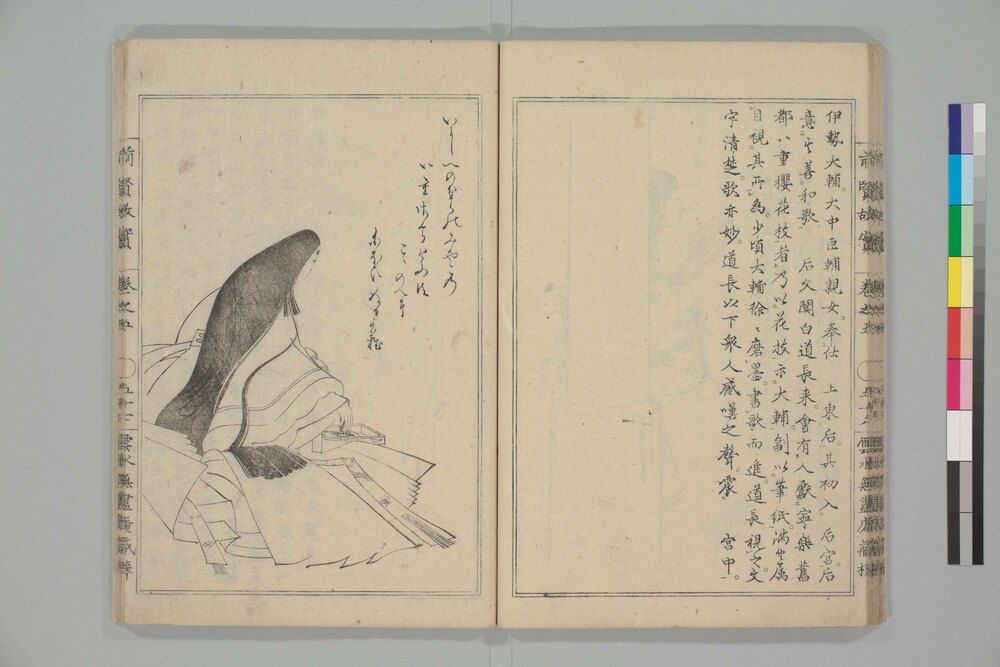 伊勢大輔。大中臣輔親女。奉仕 上東后。其初入 后宮后
意其善和歌 后父関白道長来。會有人獻寧樂舊
都八重櫻花枝者乃以花枝示大輔。副以筆紙。満坐属
目視其所為。少頃大輔徐〻磨墨。書歌而進。道長視之文
字清楚。歌亦妙。道長以下衆人感嘆之聲。震 宮中。
前賢故實 巻之五
雲水無盡庵藏梓
いにしへのならのみやこの
いへ
けふ
こゝのへ
前賢故實 巻之五
雲水無盡庵藏梓